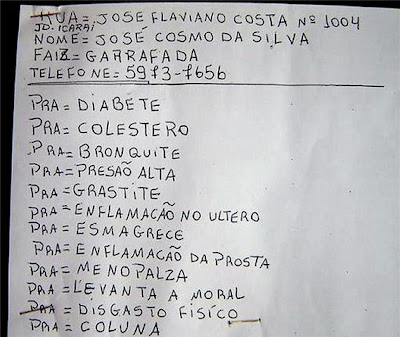 RUA = JOSE FLAVIANO COSTA Nº 1004
JD. ICARAI
NOME = JOSÉ COSMO DA SILVA
FAIZ = GARRAFADA
TELEFONE = 5973-7656
PRA = DIABETE
PRA = COLESTERO
PRA = BRONQUITE
PRA = PRESÃO ALTA
PRA = GRASTITE
PRA = ENFLAMAÇÃO NO ULTERO
PRA = ESMAGRECE
PRA = ENFLAMAÇÃO DA PROSTA
PRA = MENOPALZA
PRA = LEVANTA A MORAL
PRA = DISGASTO FISÍCO
PRA = COLUNA